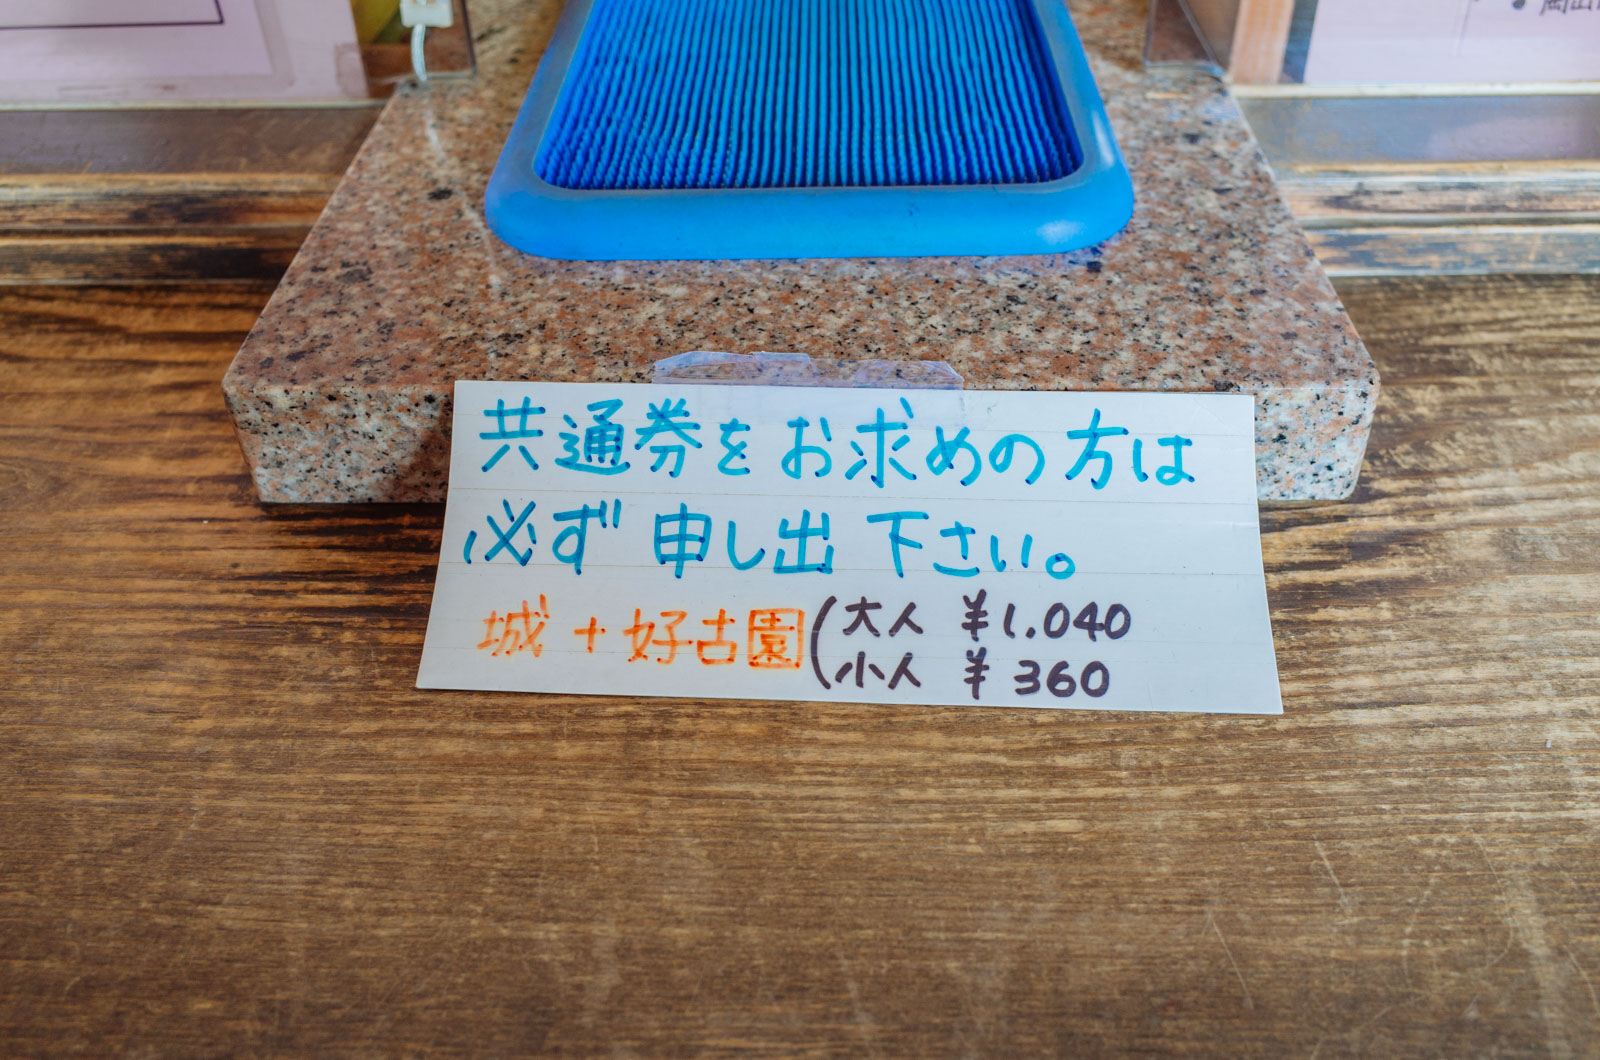 共通券をお求めの方は
必ず申し出下さい。
城+好古園(大人 ¥1.040
小人 ¥360